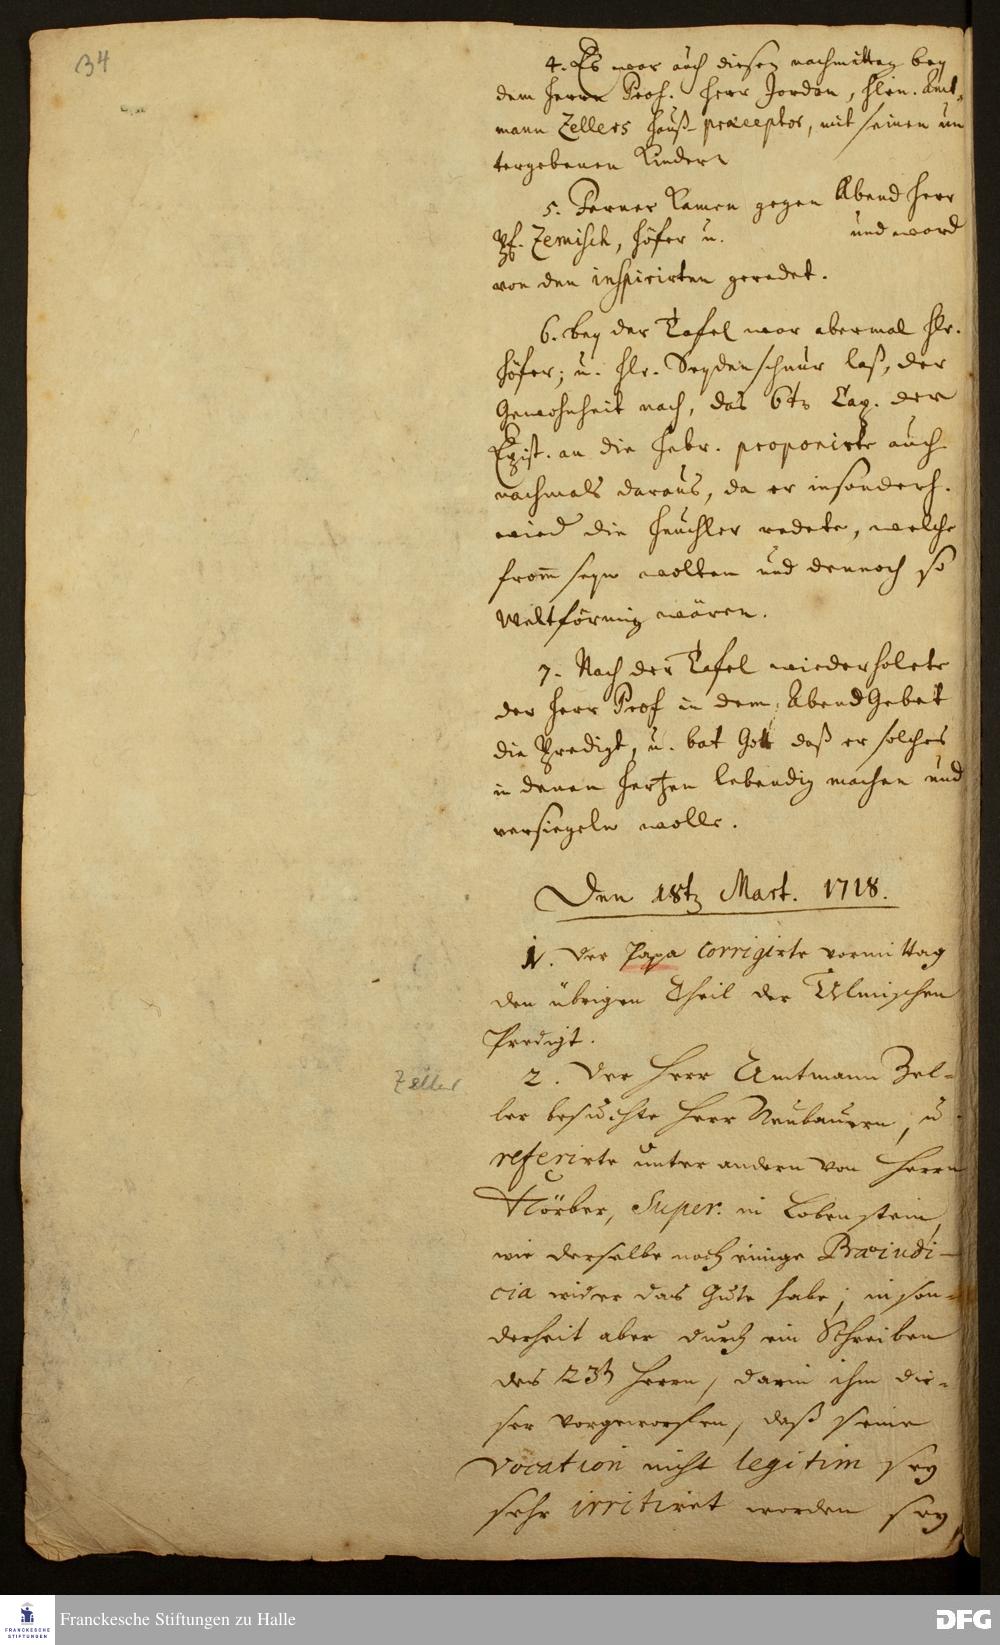 34
4. Es war auch diesen nachmittag bey
dem Herrn Prof. Herr Jordan, Hln. Amt,
mann Zellers Hauß-praeceptor, mit seinen un
tergebenen Kindern
5. Ferner kamen gegen Abend Herr
Pf. Zemisch, Höfer u. und ward
von den inspirirten geredet.
6. bey der Tafel war abermal Hlr.
Höfer; u. Hlr. Seydenschnur laß, der
Gewohnheit nach, das 6te Cap. der
Epist. an die Hebr. proponirte auch
nachmals daraus, da er insonderh.
wied die Heuchler redete, welche
from̄ seyn wolten und dennoch so
Weltförmig wären.
7. Nach der Tafel wiederholete
der Herr Prof in dem AbendGebet
die Predigt, u. bat Gott daß er solches
in denen Hertzen lebendig machen und
versiegeln wolle.
Den 18t. Mart. 1718.
1. Der Papa corrigirte vormittag
den übrigen Theil der Ulmischen
Predigt.
Zeller
2. Der Herr Amtmann Zel-
ler besuchte Herr Neubauern, u
referirte unter andern von Herrn
Körber, Super. in Lobenstein,
wie derselbe noch einige Praeiudi-
cia wider das Gute habe; inson-
derheit aber durch ein Schreiben
des Herrn, darin ihm die-
ser vorgeworffen, daß seine
Vocation nicht legitim sey
sehr irritiret worden sey,
FRANCKESCHE STIFTUNGEN
Franckesche Stiftungen zu Halle
DFG